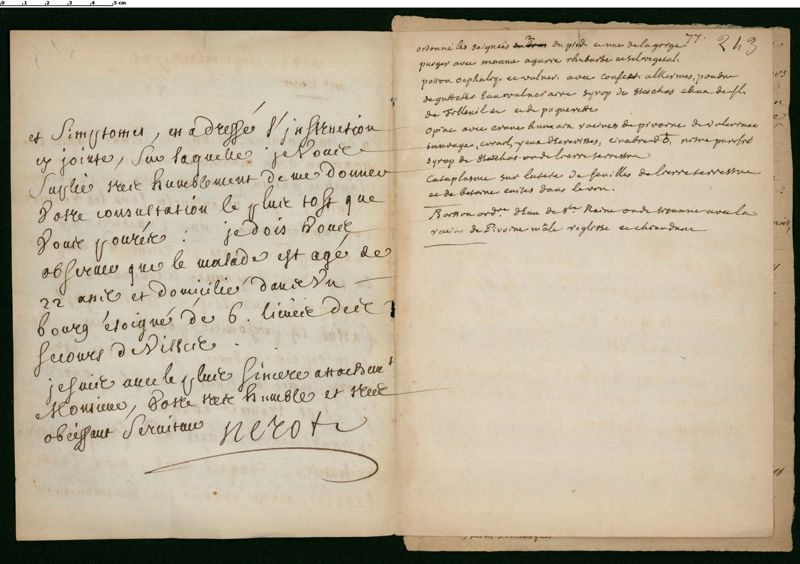 et simptomes, en adressé l'instruction
cy jointe, sur laquelle je vous
suplie tres humblement de me donner
votre consultation le plus tost que
vous pourés : je dois vous
observer que le malade est agé de
22 ans et domicilié dans un
bourg éloigné de 6. lieües des
secours de Ville .
je suis avec le plus sincere attachemt
Monsieur, votre tres humble et tres
obeissant serviteur nerot
77. 243
ordonné les saignées du pied et une de la gorge
purger avec manne agaric rhubarbe et sel vegetal
potion cephaliq. et vulner. avec confect. alkermes, poudre
de guttette Eau vulneraire syrop de stoechas et eau de fl.
de Tilleuil et de paquerette
Opiat avec crane humain racines de pivoine de valeriane
sauvage, corail, yeux d'ecrevisses, cinabre nitre purifié
syrop de stoechas ou de lierre terrestre
Cataplasme sur la teste de feuilles de lierre terrestre
et de betoine cuites dans le vin.
Boisson ordre. d'Eau de Ste Reine ou de avec la
racine de Pivoine mâle reglisse et chiendent